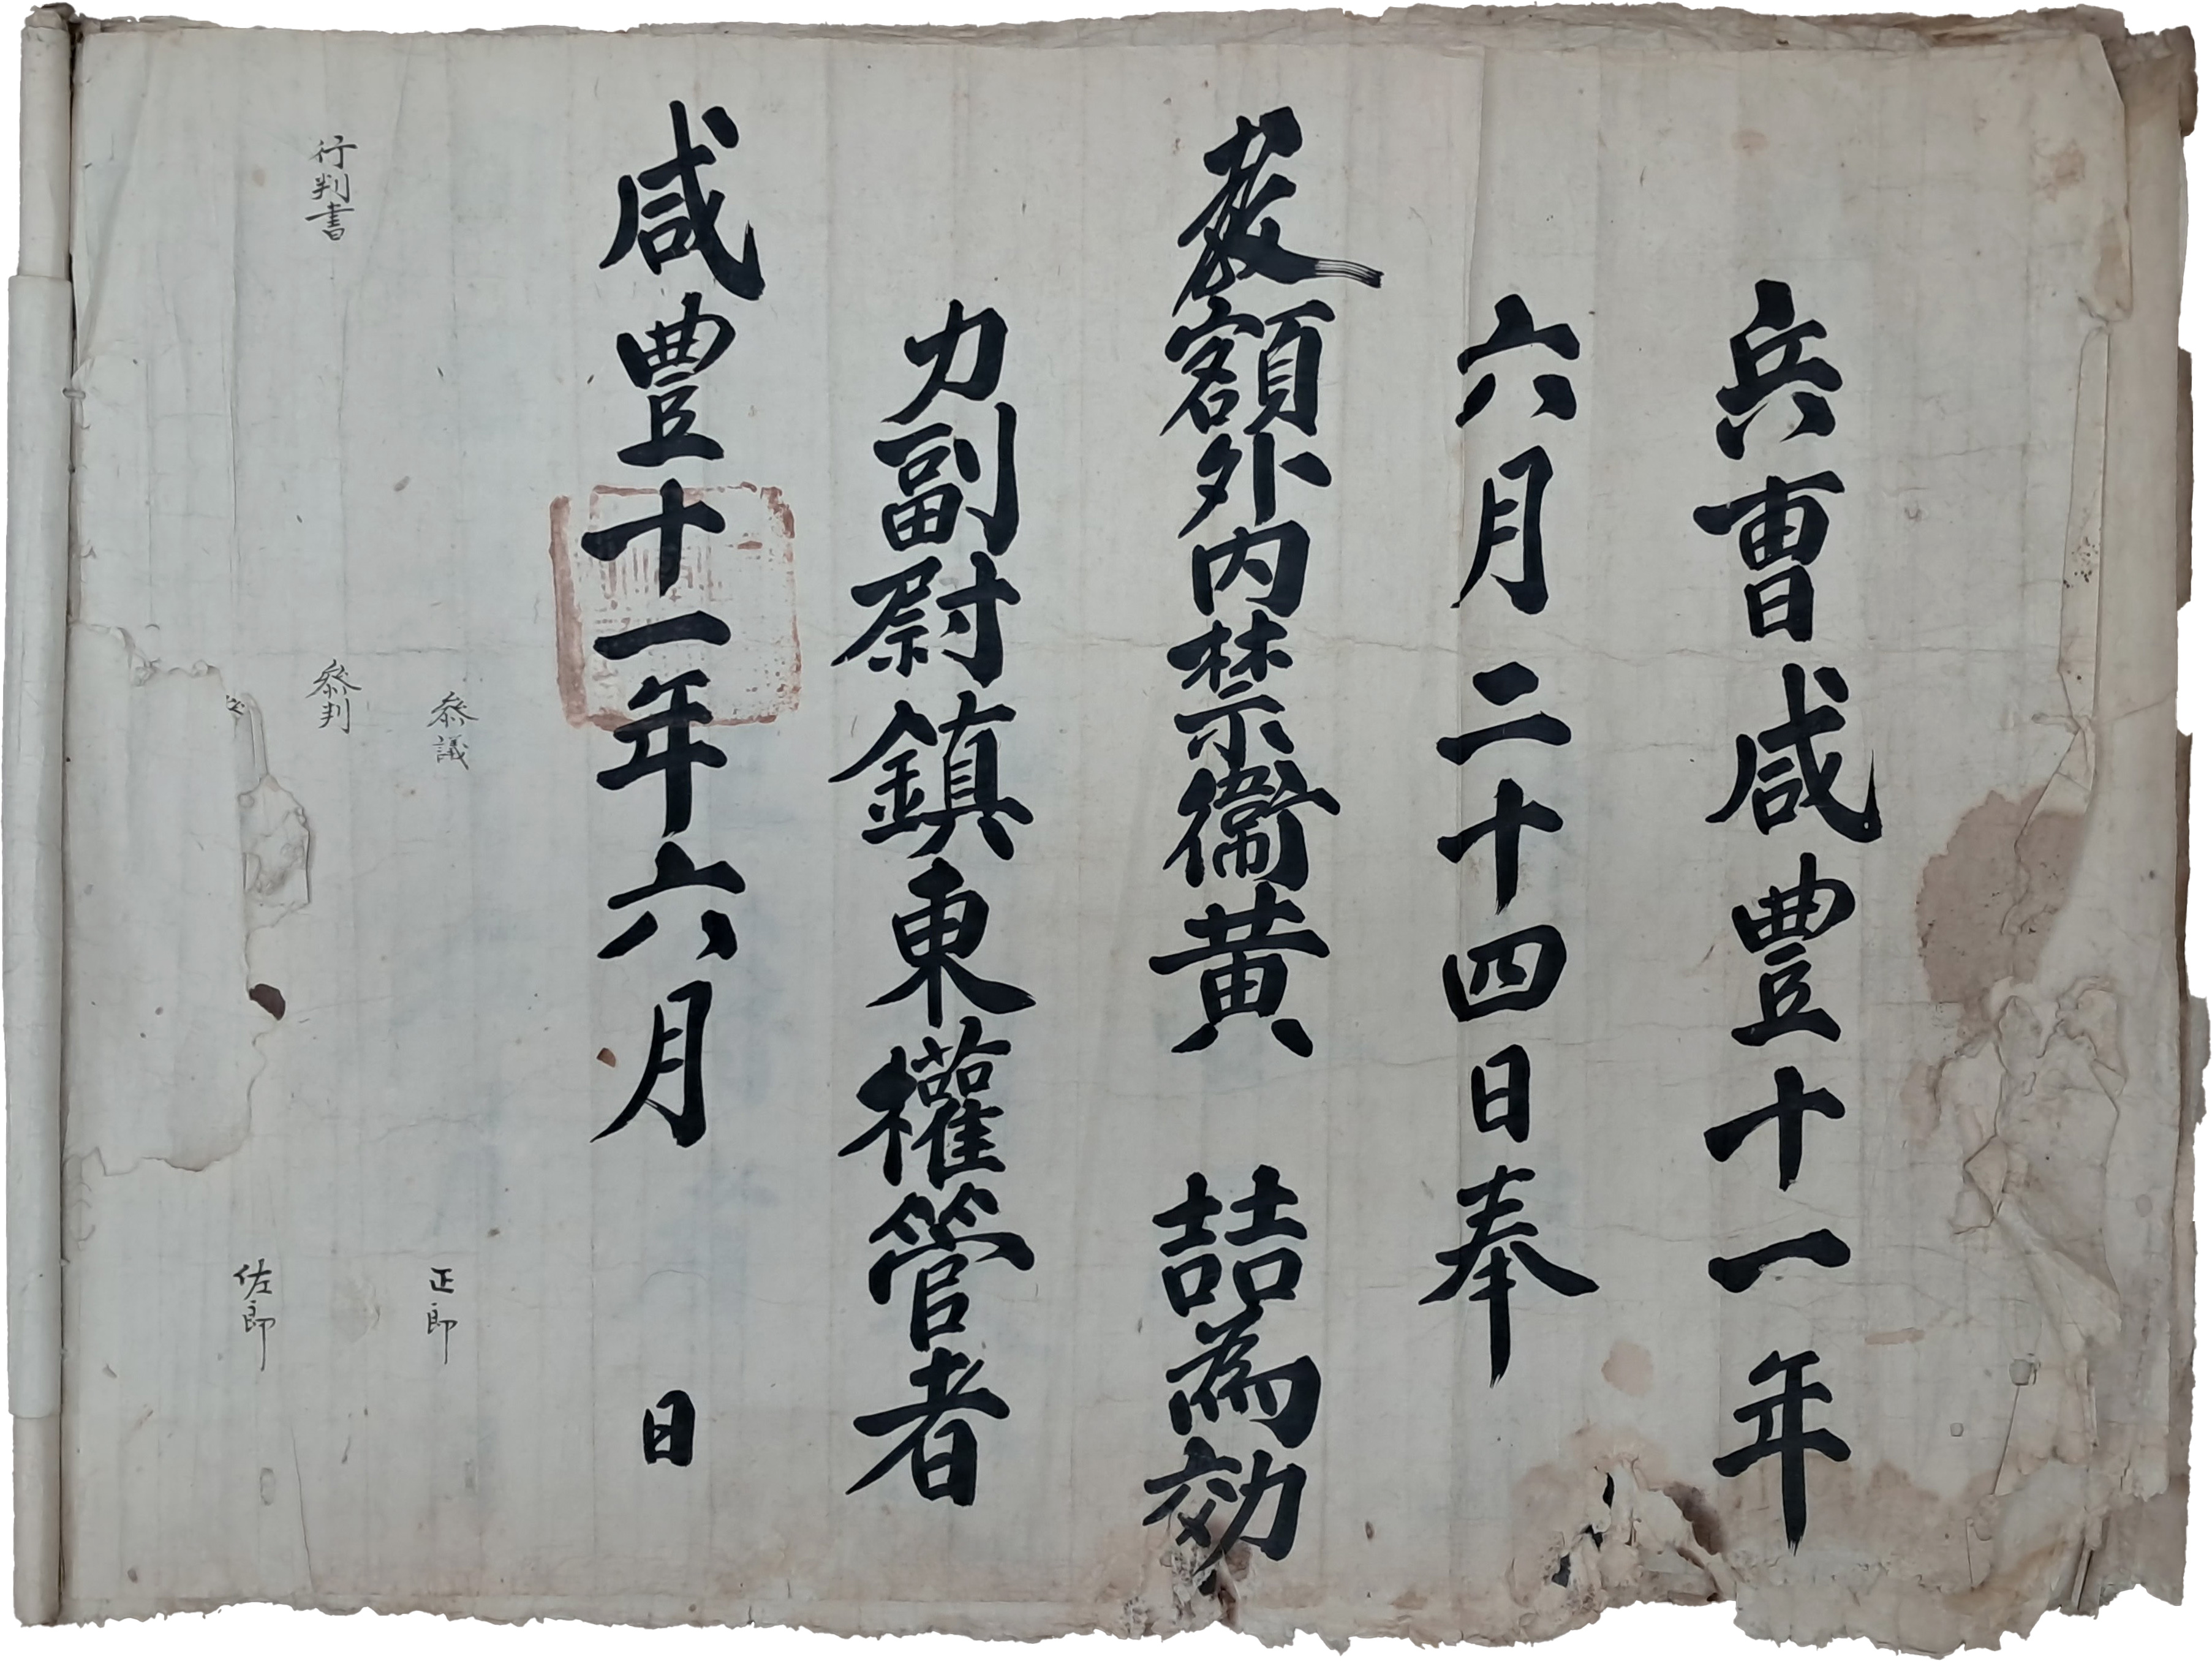 兵曹咸豐十一年
六月二十四日奉
教額外內禁衛黃 喆為効
力副尉鎮東權管者
咸豐十一年六月 日
參議
正郎
行判書
參判
佐郎